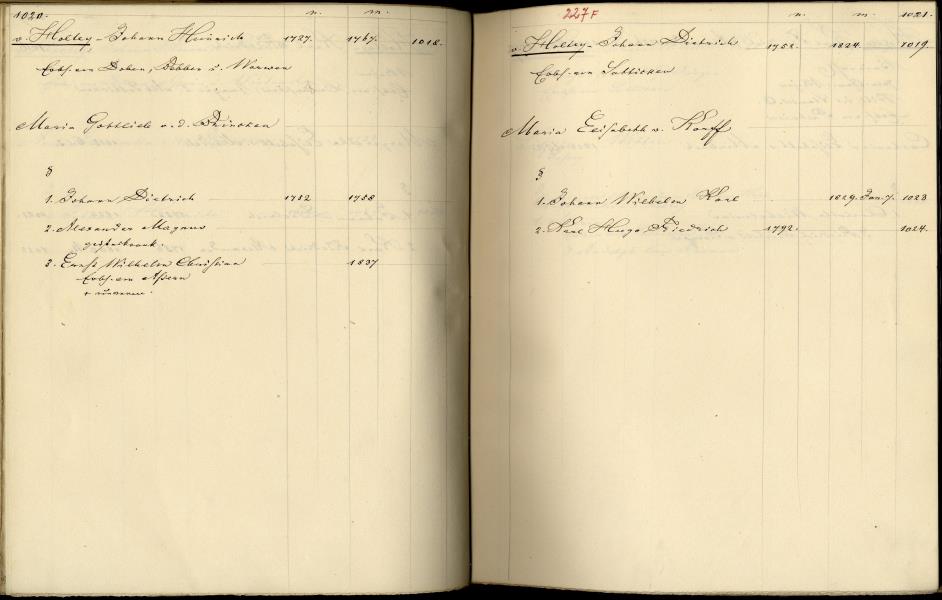 1020.
n. m.
v. Holtey - Johann Heinrich 1727. 1767. 1018.
Erbh. von Doben, Bebber u. Warwen
Maria Gottlieb v. d. Brincken
1. Johann Dietrich 1752 1758
2. Alexander Magnus
3. Ernst Wilhelm Christian 1837
Erbh. von
227F
n. m. 1021.
v. Holtey - Johann Dietrich 1752. 1824. 1019.
Erbh. von Satticken
Maria Elisabeth v. Korff
1. Johann Wilhelm Karl 1829. Jan. 7. 1023
2. Karl Hugo Friedrich 1792. 1024.